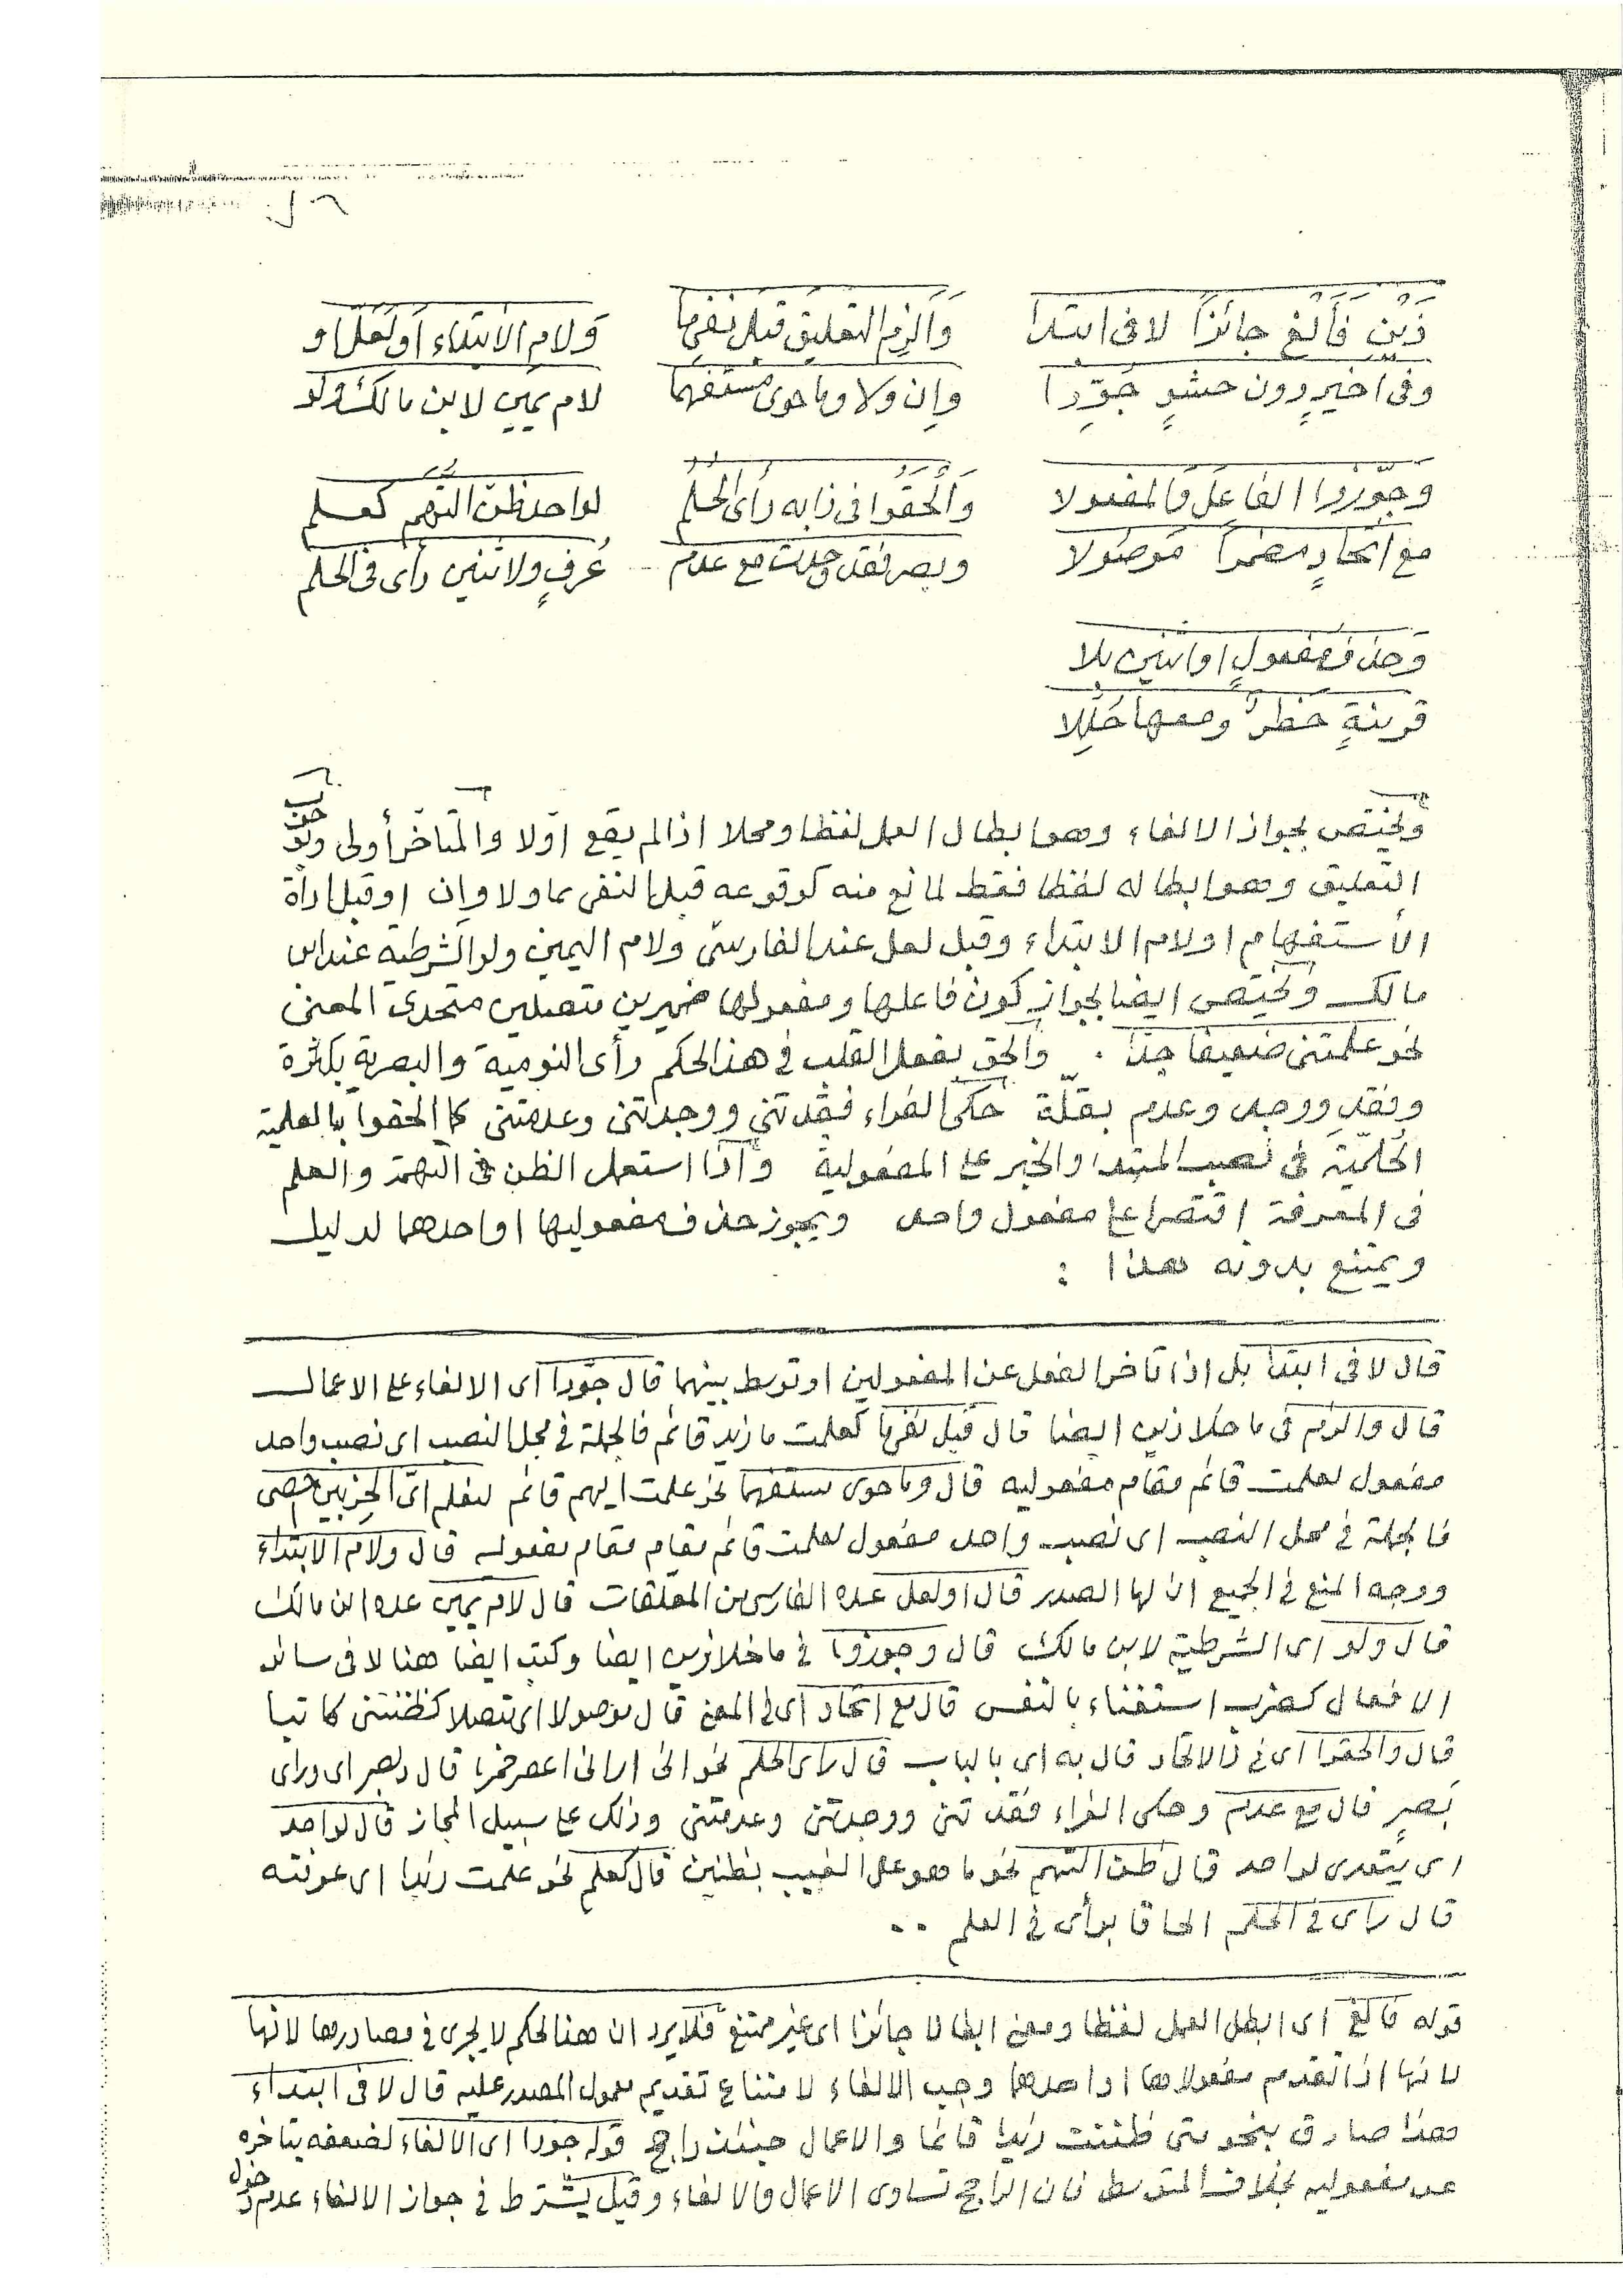 ذَيْنِ فَأَلْغِ جائزًا لا فى ابتدا
وَأَلزِمِ التعليقَ قبلَ نفىِ ما
وَلام الابتداء اَو لَعَلَّ او
وفى اخيرٍ دون حشوٍ جَوِّدا
وإن ولا وما حوى مستفهما
لام يمين لابن مالك ولو
وَجَوَّزوا الفاعلَ والمفعولا
وَأَلْحَقُوا فى ذا به رأى الحلم
لواحد ظن التهم كعلم
مع اتحادٍ مضمرًا موصولا
وبصر فقد وجدت مع عدم
عُرفٍ ولاثنين رأى فى الحلم
وَحذف مفعولٍ او اثنين بلا
قرينةٍ حظرٌ ومعها حُلِّلا
وتختص بجواز الالغاء وهو ابطال العمل لفظا ومحلا اذا لم يقع اوّلا والمتاخر أولى وبوجوب
التعليق وهو ابطاله لفظا فقط لمانع منه كوقوعه قبل النفى بما ولا وإن او قبل اداة
الأستفهام او لام الابتداء وقبل لعل عند الفارسىّ ولام اليمين ولو الشرطية عند ابن
مالك وتختص ايضا بجواز كون فاعلها ومفعولها ضميرين متصلين متحدى المعنى
نحو علمتنى ضعيفا جدّا . وألحق بفعل القلب فى هذا الحكم رأى النومية والبصرية بكثرة
وفقد ووجد وعدم بقلّة حكى الفراء فقدتنى ووجدتنى وعدمتنى كما الحقوا بالعلمية
الحُلميّة فى نصب المبتدا والخبر على المفعولية وإذا استعمل الظن فى التهمة والعلم
فى المعرفة اقتصرا على مفعول واحد ويجوز حذف مفعوليها او احدهما لدليل
ويمتنع بدونه هذا :
قال لا فى ابتدا بل اذا تاخر الفعل عن المفعولين او توسط بينهما قال جوّدا اى الالغاء على الاعمال
قال والزم فى ما خلا ذين ايضا قال قبل نفى ما كعلمت ما زيد قائم فالجملة فى محل النصب اى نصب واحد
مفعول لعلمت قائم مقام مفعوليه قال وما حوى مستفهما نحو علمت ايهم قائم لنعلم اىّ الحزبين احصى
فالجملة فى محل النصب اى نصب واحد مفعول لعلمت قائم مقام مفعوليه قال ولام الابتداء
ووجه المنع فى الجميع ان لها الصدر قال او لعل عده الفارسى من المعلقات قال لام يمين عده ابن مالك
قال ولو اى الشرطية لابن مالك قال وجوزوا فى ما خلا ذين ايضا وكتب ايضا هنا لا فى سائر
الافعال كضرب استغناء بالنفس قال مع اتحاد اى فى المعنى قال موصولا اى متصلا كظننتنى كاتبا
قال والحقوا اى فى ذا الاتحاد قال به اى بالباب قال رأى الحلم نحو انى ارانى اعصر خمرا قال وبصر اى ورأى
بَصَرٍ قال مع عدم وحكى الفراء فقدتنى ووجدتنى وعدمتنى وذلك على سبيل المجاز قال لواحد
اى يتعدى لواحد قال ظن التهم نحو ما هو على الغيب بظنين قال كعلم نحو علمت زيدا اى عرفته
قال رأى فى الحلم الحاقا برأى فى العلم ..
قوله فألغ اى ابطل العمل لفظا ومعنى ابطالا جائزا اى غير ممتنع فلا يرد ان هذا الحكم لا يجرى فى مصادرها لانها
لانها اذا تقدم مفعولاها او احدهما وجب الالغاء لامتناع تقديم معمول المصدر عليه قال لا فى ابتداء
هذا صادق بنحو متى ظننت زيدا قائما والاعمال حينئذ راجح قوله جودا اى الالغاء لضعفه بتاخره
عن مفعوليه بخلاف المتوسط فان الراجح تساوى الاعمال والالغاء وقيل يشترط فى جواز الالغاء عدم دخول